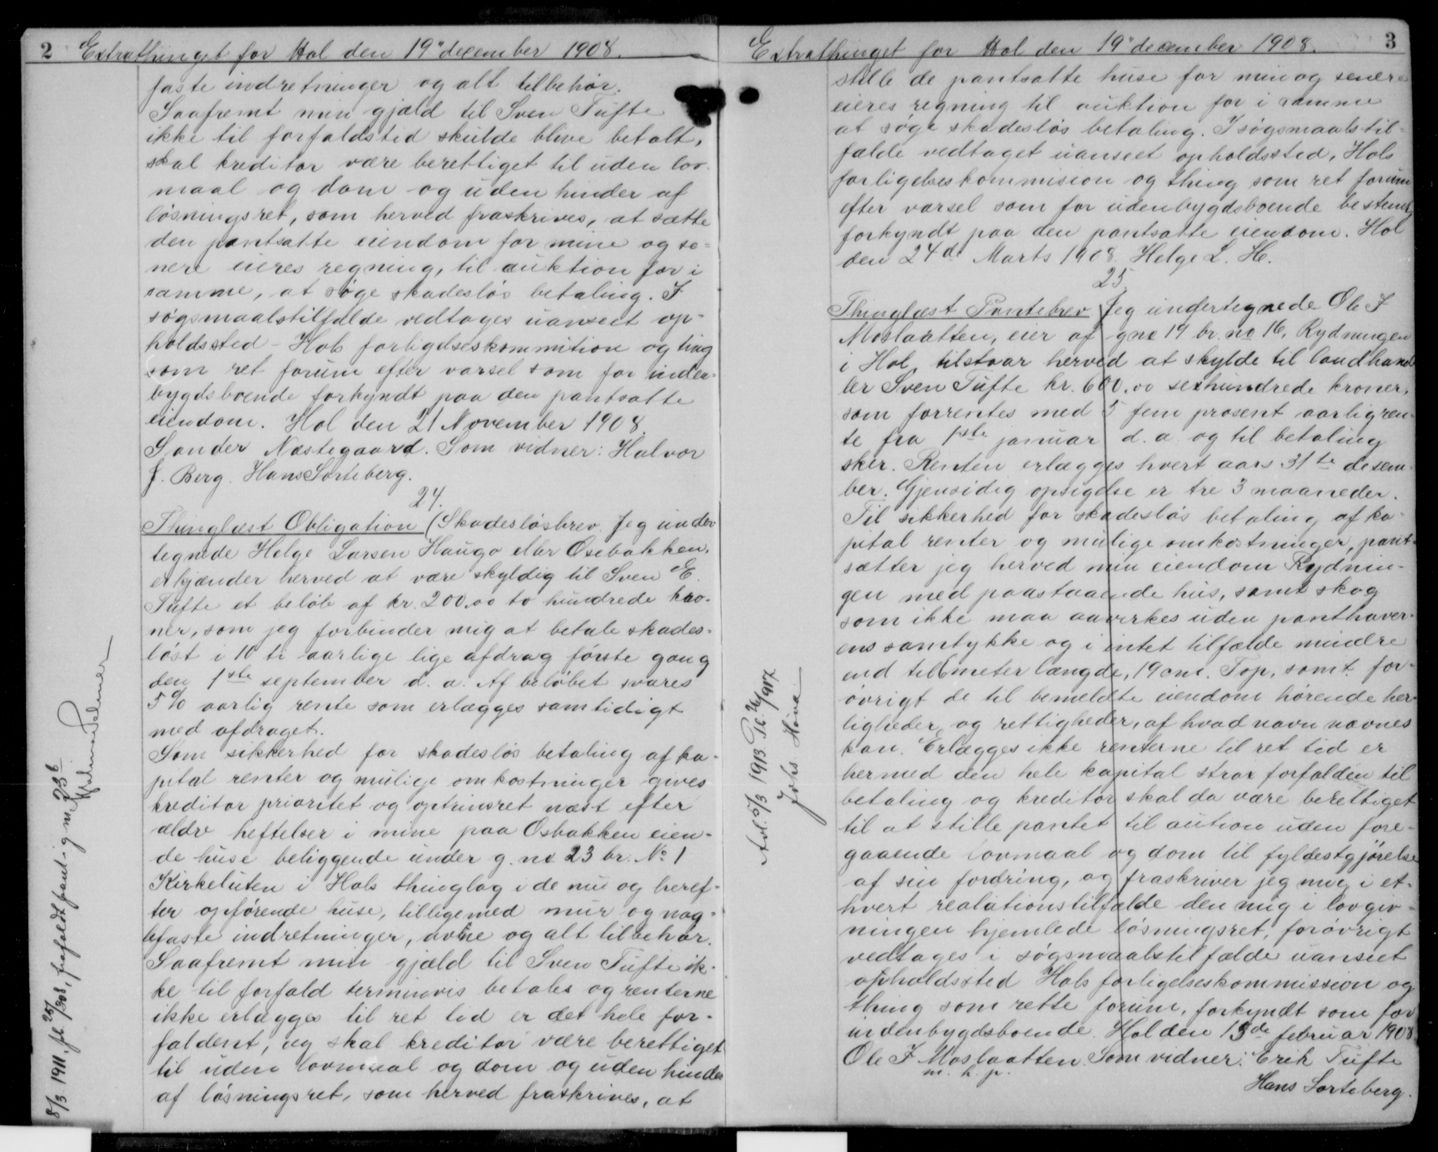 2 Extrathinget for Hol den 19de december 1908.
faste indretninger og alt tilbehør.
Saafremt min gjæld til Sven Tufte
ikke til forfaldstid skulde blive betalt,
skal kreditor være berettiget til uden lov-
maal og dom og uden hinder af
løsningsret, som herved fraskrives, at sætte
den pantsatte eiendom for mine og se-
nere eieres regning, til auktion for i
samme, at søge skadesløs betaling. I
søgsmaalstilfælde vedtages uanseet op-
holdssted - Hols forligelseskommition og ting
som ret forum efter varsel som for inden-
bygdsboende forkyndt paa den pantsatte
eiendom. Hol den 21 November 1908.
Sander Næstegaard. Som vidner: Halvor
J. Berg. Hans Sorteberg.
24.
Thinglæst Obligation (Skadesløsbrev. Jeg under
tegnede Helge Larsen Haugo eller Osebakken.
erkjænder herved at være skyldig til Sven E.
Tufte et beløb af kr. 200.00 to hundrede kro-
ner, som jeg forbinder mig at betale skades-
løst i 10 ti aarlige lige afdrag første gang
den 1ste september d. a. Af beløbet svares
5% aarlig rente som erlægges samtidigt
med afdraget.
Som sikkerhed for skadesløs betaling af ka-
pital renter og mulige omkostninger gives
kreditor prioritet og optrinsret næst efter
ældre heftelser i mine paa Osbakken eien-
de huse beliggende under g. no 23 br. No 1
Kirkeluten i Hols thinglag i de nu og heref-
ter opførende huse, tilligemed mur og nag-
lefaste indretninger, ovne og alt tilbehør.
Saafremt min gjæld til Sven Tufte ik-
ke til forfald terminvis betales og renterne
ikke erlægges til ret tid er det hele for-
faldent, og skal kreditor være berettiget
til uden lovmaal og dom og uden hinder
af løsningsret, som herved fraskrives, at
8/3 1911,
Extrathinget for Hol den 19de december 1908. 3
stille de pantsatte huse for min og senere
eieres regning til auktion for i samme
at søge skadesløs betaling. I søgsmaalstil-
fælde vedtaget uanseet opholdssted, Hols
forligelseskommision og thing som ret forum
efter varsel som for udenbygdsboende bestemt,
forkyndt paa den pantsatte eiendom. Hol
den 24de Marts 1908 Helge L. H.
25.
Thinglæst Pantebrev Jeg undertegnede Ole J
Moslaatten, eier af gno 19 br. no 16, Rydningen
i Hol, tilstaar herved at skylde til landhand
ler Sven Tufte kr. 600.00 sexhundrede kroner,
som forrentes med 5 fem prosent aarlig ren-
te fra 1ste januar d. a. og til betaling
sker. Renten erlægges hvert aars 31te desem-
ber. Gjensidig opsigelse er tre 3 maaneder.
Til sikkerhed for skadesløs betaling af ka-
pital renter og mulige omkostninger, pant-
sætter jeg herved min eiendom Rydnin-
gen med paastaaende hus, samt skog
som ikke maa avirkes uden panthaver-
ens samtykke og i intet tilfælde mindre
end til 6 meter længde, 19 cm. Top, samt for-
øvrigt de til bemeldte eiendom hørende her-
ligheder og rettigheder, af hvad navn nævnes
kan. Erlægges ikke renterne til ret tid er
hermed den hele kapital strax forfalden til
betaling og kreditor skal da være berettiget
til at stille pantet til aution uden fore-
gaaende lovmaal og dom til fyldestgjørelse
af sin fordring, og fraskriver jeg mig i et-
hvert realationstilfælde den mig i lovgiv-
ningen hjemlede løsningsret, forøvrigt
vedtages i søgsmaalstilfælde uanseet
opholdssted Hols forligelseskommission og
thing som rette forum, forkyndt som for
udenbygdsboende. Hol den 15de februar 1908
Ole J Moslaatten Som vidner: Erik Tufte
m. h. p.
Hans Sorteberg.